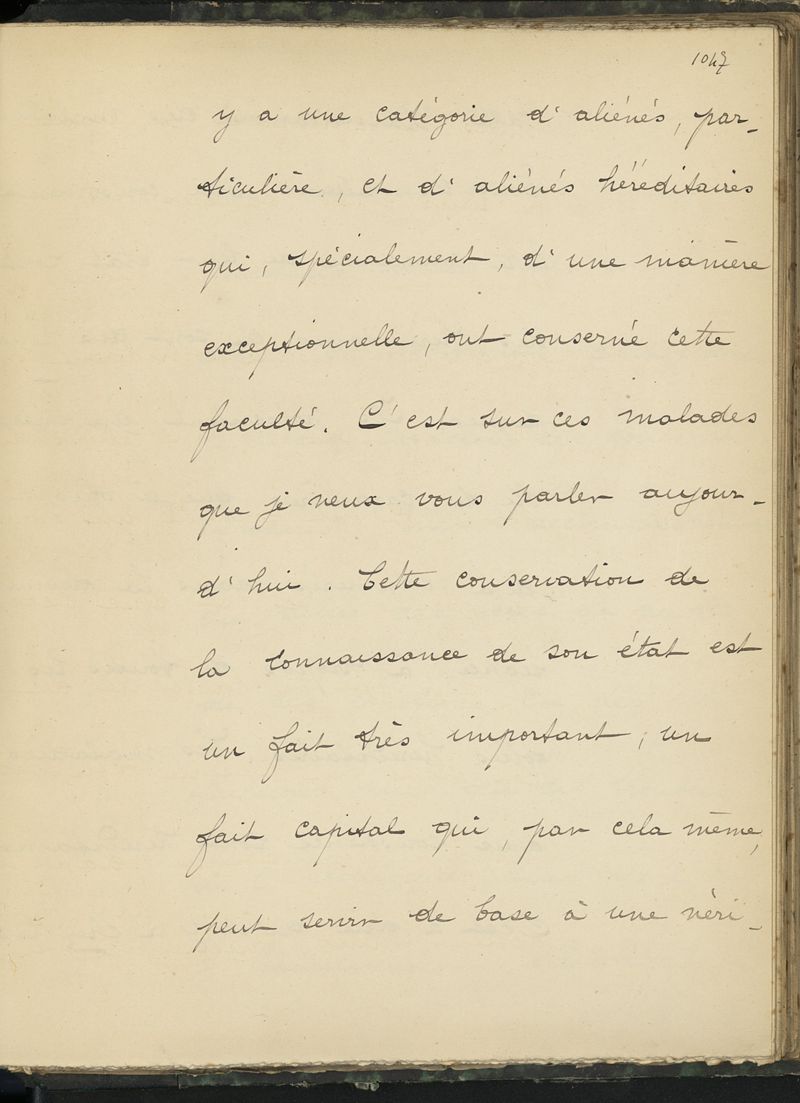 1047
y a une catégorie d'aliénés, par-
ticulière, et d'aliénés héréditaires
qui, spécialement, d'une manière
exceptionnelle, ont conservé cette
faculté. C'est sur ces malades
que je veux vous parler aujour-
d'hui. Cette conservation de
la connaissance de son état est
un fait très important, un
fait capital qui, par cela même,
peut servir de base à une véri-